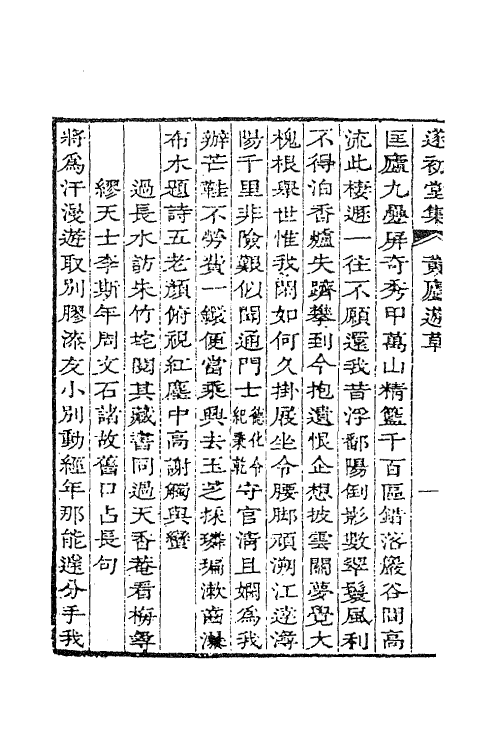 遂初堂集 黃廬遊草 一
匡廬九疊屏奇秀甲萬山精籃千百區錯落巖谷間高
流此棲遯一往不願還我昔浮鄱陽倒影數翠鬟風利
不得泊香爐失躋攀到今抱遺恨企想披雲關夢覺大
槐根舉世惟我閑如何久掛屐坐令腰脚頑溯江達潯
陽千里非險艱似聞通門士德化令紀秉乾守官淸且嫻爲我
辦芒鞋不勞費一鍰便當乘興去玉芝採璘㻞漱齒瀑
布水題詩五老顏俯視紅塵中高謝觸與蠻
過長水訪朱竹垞閱其藏書同過天香菴看梅尊
繆天士李斯年周文石諸故舊口占長句
將爲汗漫遊取別膠漆友小別動經年那能遽分手我